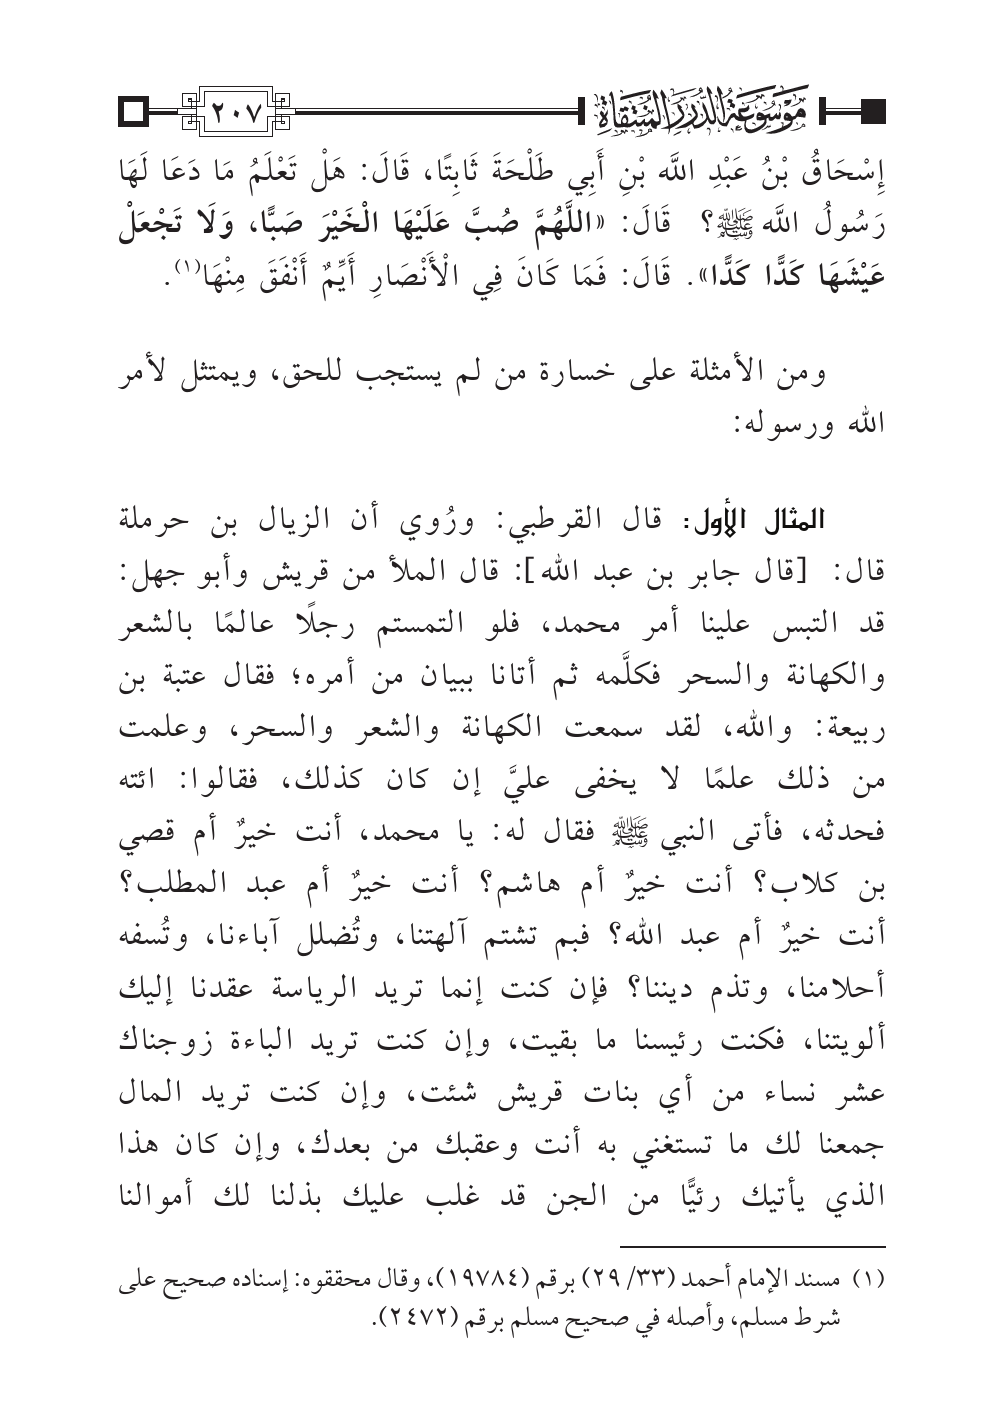 موسوعة الدرر المنتقاة
٢٠٧
إِسْحَاقُ بْنُ عَبْدِ اللَّه بْنِ أَبِي طَلْحَةَ ثَابِتًا، قَالَ: هَلْ تَعْلَمُ مَا دَعَا لَهَا
رَسُولُ اللَّه ﷺ؟ قَالَ: «اللَّهُمَّ صُبَّ عَلَيْهَا الْخَيْرَ صَبًّا، وَلَا تَجْعَلْ
عَيْشَهَا كَدًّا كَدًّا». قَالَ: فَمَا كَانَ فِي الْأَنْصَارِ أَيِّمٌ أَنْفَقَ مِنْهَا(١).
ومن الأمثلة على خسارة من لم يستجب للحق، ويمتثل لأمر
الله ورسوله:
المثال الأول: قال القرطبي: ورُوي أن الزيال بن حرملة
قال: [قال جابر بن عبد الله]: قال الملأ من قريش وأبو جهل:
قد التبس علينا أمر محمد، فلو التمستم رجلًا عالمًا بالشعر
والكهانة والسحر فكلَّمه ثم أتانا ببيان من أمره؛ فقال عتبة بن
ربيعة: والله، لقد سمعت الكهانة والشعر والسحر، وعلمت
من ذلك علمًا لا يخفى عليَّ إن كان كذلك، فقالوا: ائته
فحدثه، فأتى النبي ﷺ فقال له: يا محمد، أنت خيرٌ أم قصي
بن كلاب؟ أنت خيرٌ أم هاشم؟ أنت خيرٌ أم عبد المطلب؟
أنت خيرٌ أم عبد الله؟ فبم تشتم آلهتنا، وتُضلل آباءنا، وتُسفه
أحلامنا، وتذم ديننا؟ فإن كنت إنما تريد الرياسة عقدنا إليك
ألويتنا، فكنت رئيسنا ما بقيت، وإن كنت تريد الباءة زوجناك
عشر نساء من أي بنات قريش شئت، وإن كنت تريد المال
جمعنا لك ما تستغني به أنت وعقبك من بعدك، وإن كان هذا
الذي يأتيك رئيًّا من الجن قد غلب عليك بذلنا لك أموالنا
(١) مسند الإمام أحمد (٣٣/ ٢٩) برقم (١٩٧٨٤)، وقال محققوه: إسناده صحيح على
شرط مسلم، وأصله في صحيح مسلم برقم (٢٤٧٢).